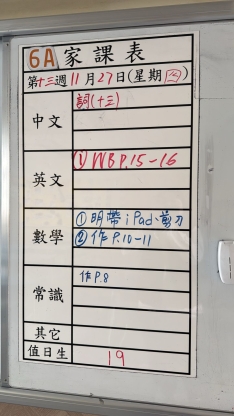 6A 家課表
第十三週11月27日(星期四)
中文
詞(十三)
英文
① WB P.15-16
數學
① 明帶 iPad、剪刀
② 作 P.10-11
常識
作 P.8
其它
值日生
19